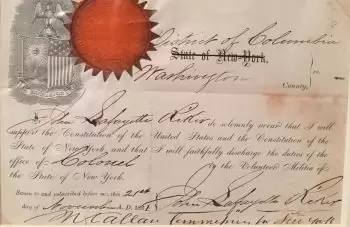 District of Columbia
State of New-York,
Washington County, } ss.
I, John Lafayette Riker do solemnly swear that I will
support the Constitution of the United States and the Constitution of the
State of New York, and that I will faithfully discharge the duties of the
office of Colonel in the Volunteer Militia of
the State of New York.
Sworn to and subscribed before me, this 21st
day of November A. D. 186 John Lafayette Riker
McCallan Commissioner for New York